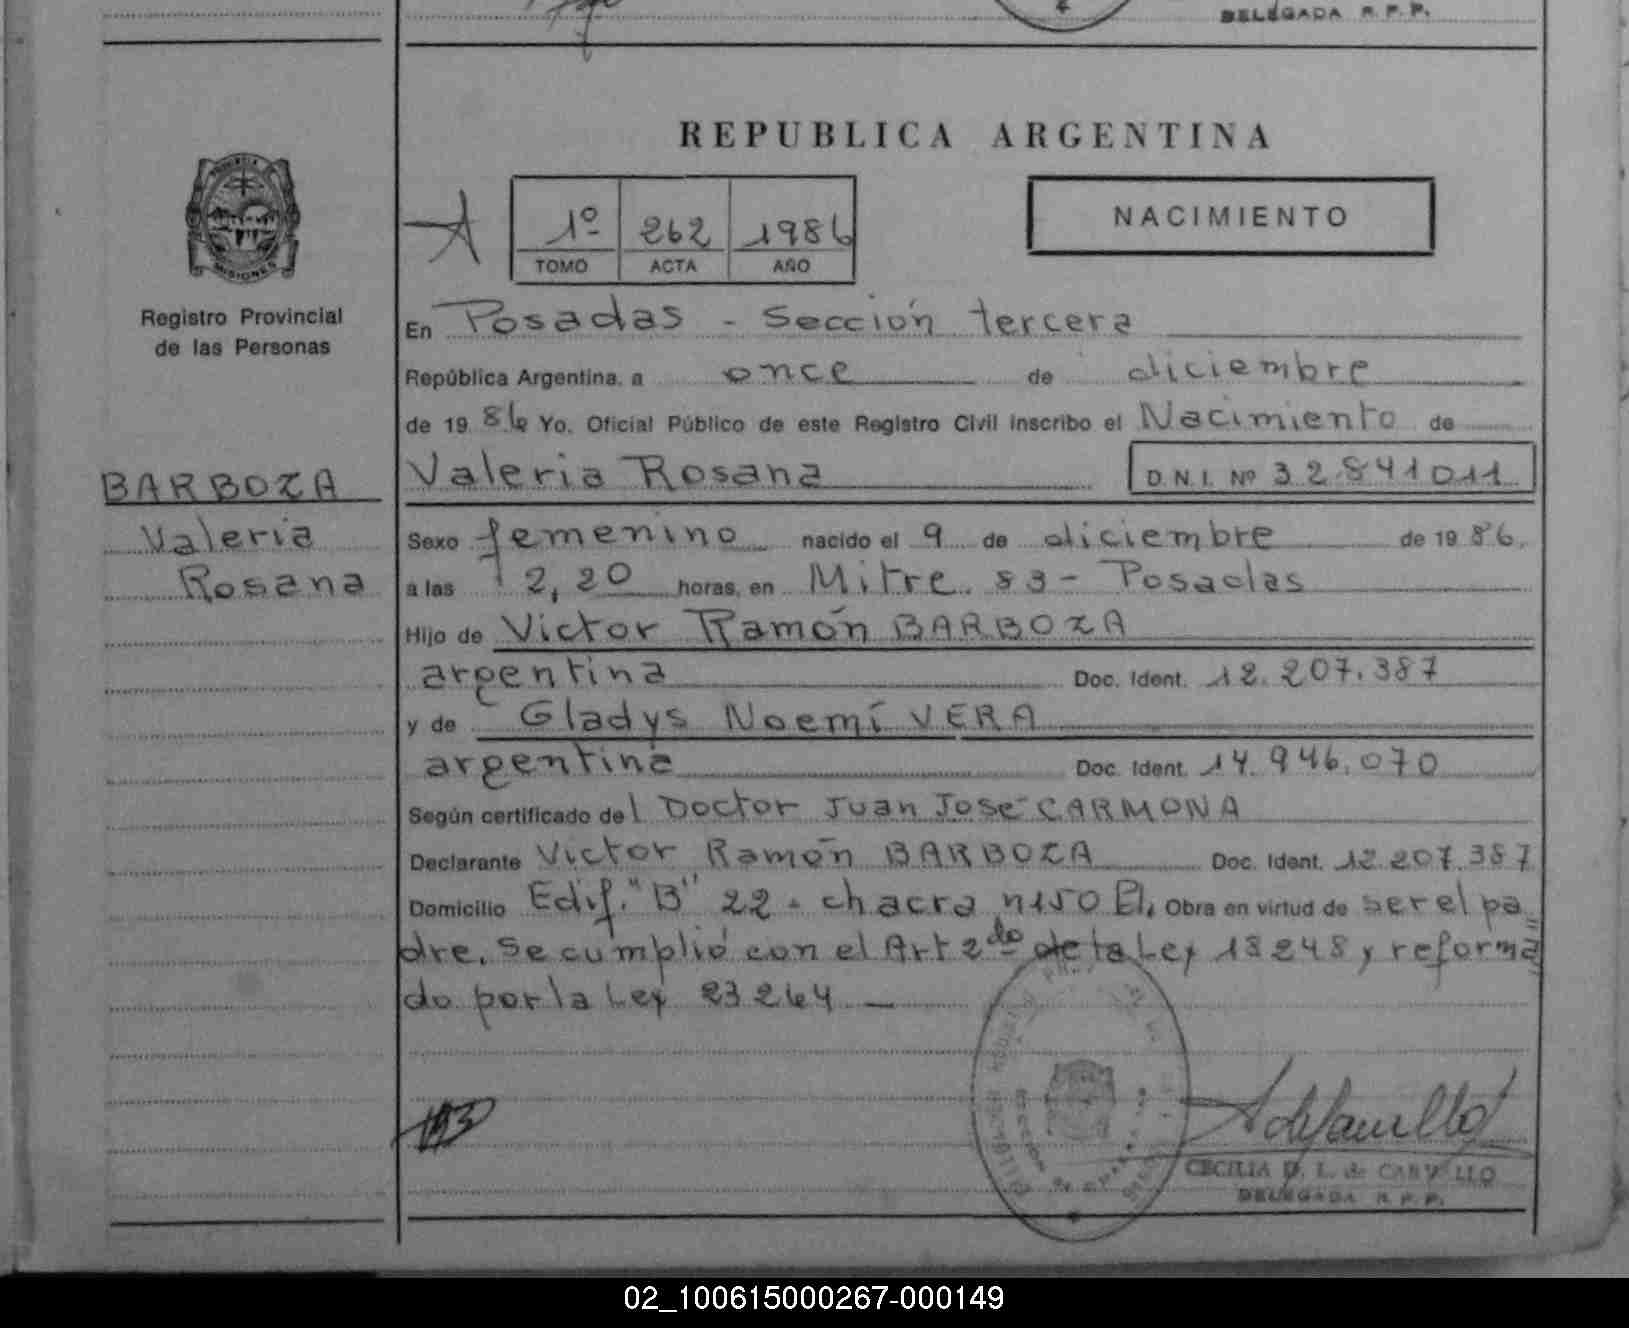 DELEGADA R.P.P.
REPUBLICA ARGENTINA
1º 262 1986
TOMO ACTA AÑO
NACIMIENTO
MISIONES
Registro Provincial
de las Personas
En Posadas - Sección tercera
República Argentina, a once de diciembre
de 19 86 Yo, Oficial Público de este Registro Civil inscribo el Nacimiento de
Valeria Rosana D.N.I. Nº 32.841011
BARBOZA
Valeria
Rosana
Sexo femenino nacido el 9 de diciembre de 19 86.
a las 12,20 horas, en Mitre 83 - Posadas
Hijo de Victor Ramón BARBOZA
argentina Doc. Ident. 12.207.387
y de Gladys Noemí VERA
argentina Doc. Ident. 14.946.070
Según certificado del Doctor Juan José CARMONA
Declarante Victor Ramón BARBOZA Doc. Ident. 12.207.387
Domicilio Edif. "B" 22 - chacra n150 El. Obra en virtud de ser el pa=
dre. Se cumplió con el Art 2do de la Ley 18248 y reforma
do por la Ley 23264 —
CECILIA D. L. de CARVALLO
DELEGADA R.P.P.
02_100615000267-000149